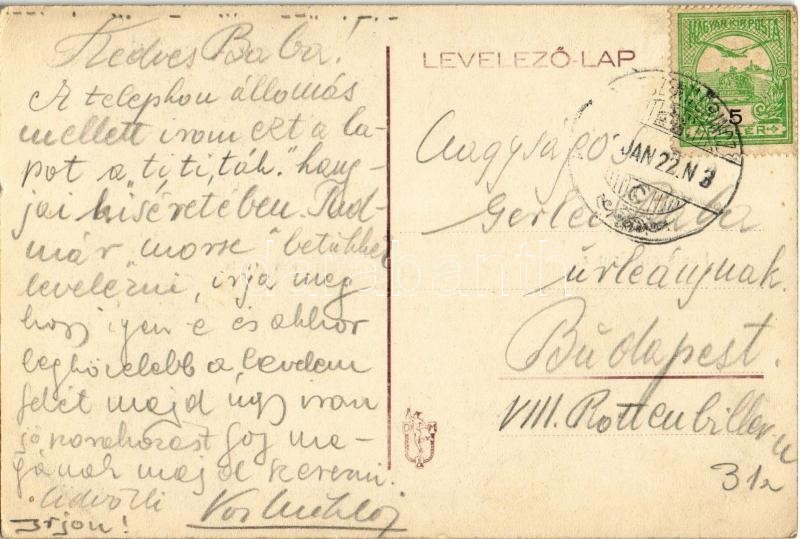 Kedves Baba!
A telephon állomás
mellett irom ezt a la-
pot a "ti ti, táh" hang-
jai kiséretében. Tud-
már "morse" betükkel
levelezni, irja meg
hogy igen-e és akkor
legközelebb a levelem
felét majd úgy irom
jó szorakozast fog ma-
gának majd szerezni.
Üdvözli
Irjon!
LEVELEZŐ-LAP
MAGYAR KIR. POSTA
5
JAN 22. N 3
C
Nagyságos
Gerleı Baba
úrleánynak.
Budapest.
VIII. Rottenbiller u
31a